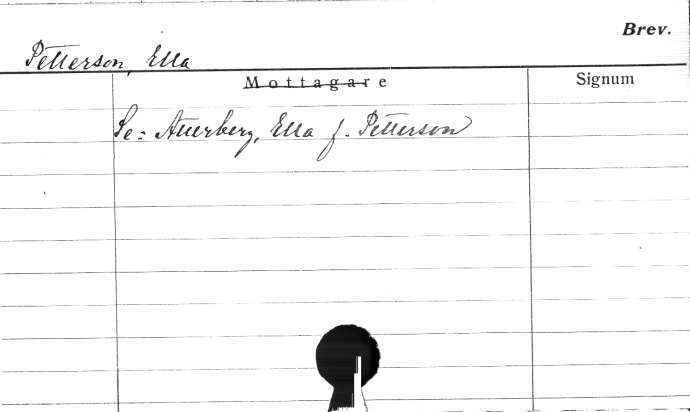 Brev.
Petterson, Ella
Mottagare
Signum
Se: Atterberg, Ella f. Petterson